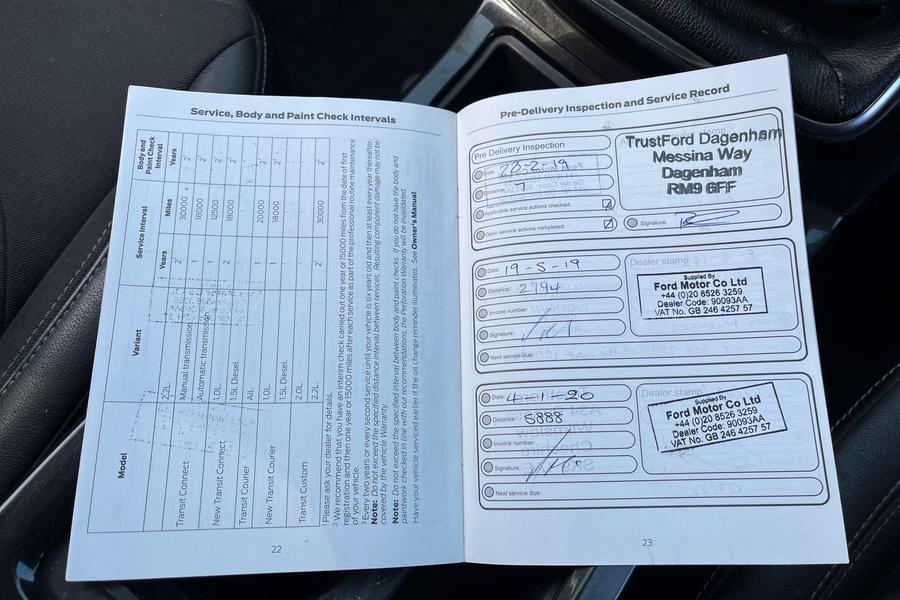 Service, Body and Paint Check Intervals
Model
Variant
Service Interval
Body and Paint Check Interval
Years
Miles
Years
Transit Connect
2.2L
Manual transmission
2
30000
2
Automatic transmission
1
18000
2
New Transit Connect
1.0L
1
12500
2
1.5L Diesel
2
18000
2
Transit Courier
All
New Transit Courier
1.0L
1
20000
2
1.5L Diesel
1
18000
2
2.0L
Transit Custom
2.2L
2
30000
2
Please ask your dealer for details.
We recommend that you have an interim check carried out one year or 15000 miles from the date of first
registration and then one year or 15000 miles after each service as part of the professional routine maintenance
of your vehicle.
Every two years or every second service until your vehicle is six years old and then at least every year thereafter.
Note: Do not exceed the specified distance interval between services. Resulting component damage may not be
covered by the vehicle Warranty.
Note: Do not exceed the specified interval between body and paint checks. If you do not have the body and
paintwork checked in line with our recommendations, the Perforation Warranty will be invalidated.
Have your vehicle serviced earlier if the oil change reminder illuminates. See Owner's Manual.
22
Pre-Delivery Inspection and Service Record
Pre Delivery Inspection
Date:
Distance: 7
Applicable service actions checked:
Open service actions completed:
TrustFord Dagenham
Messina Way
Dagenham
RM9 6FF
Signature:
Date: 19-5-19
Distance: 2794
Invoice number:
Signature:
Next service due:
Dealer stamp
Supplied By
Ford Motor Co Ltd
+44 (0)20 8526 3259
Dealer Code: 90093AA
VAT No. GB 246 4257 57
Date: 4-1-20
Distance: 5888
Invoice number:
Signature:
Next service due:
Dealer stamp
Supplied By
Ford Motor Co Ltd
+44 (0)20 8526 3259
Dealer Code: 90093AA
VAT No. GB 246 4257 57
23